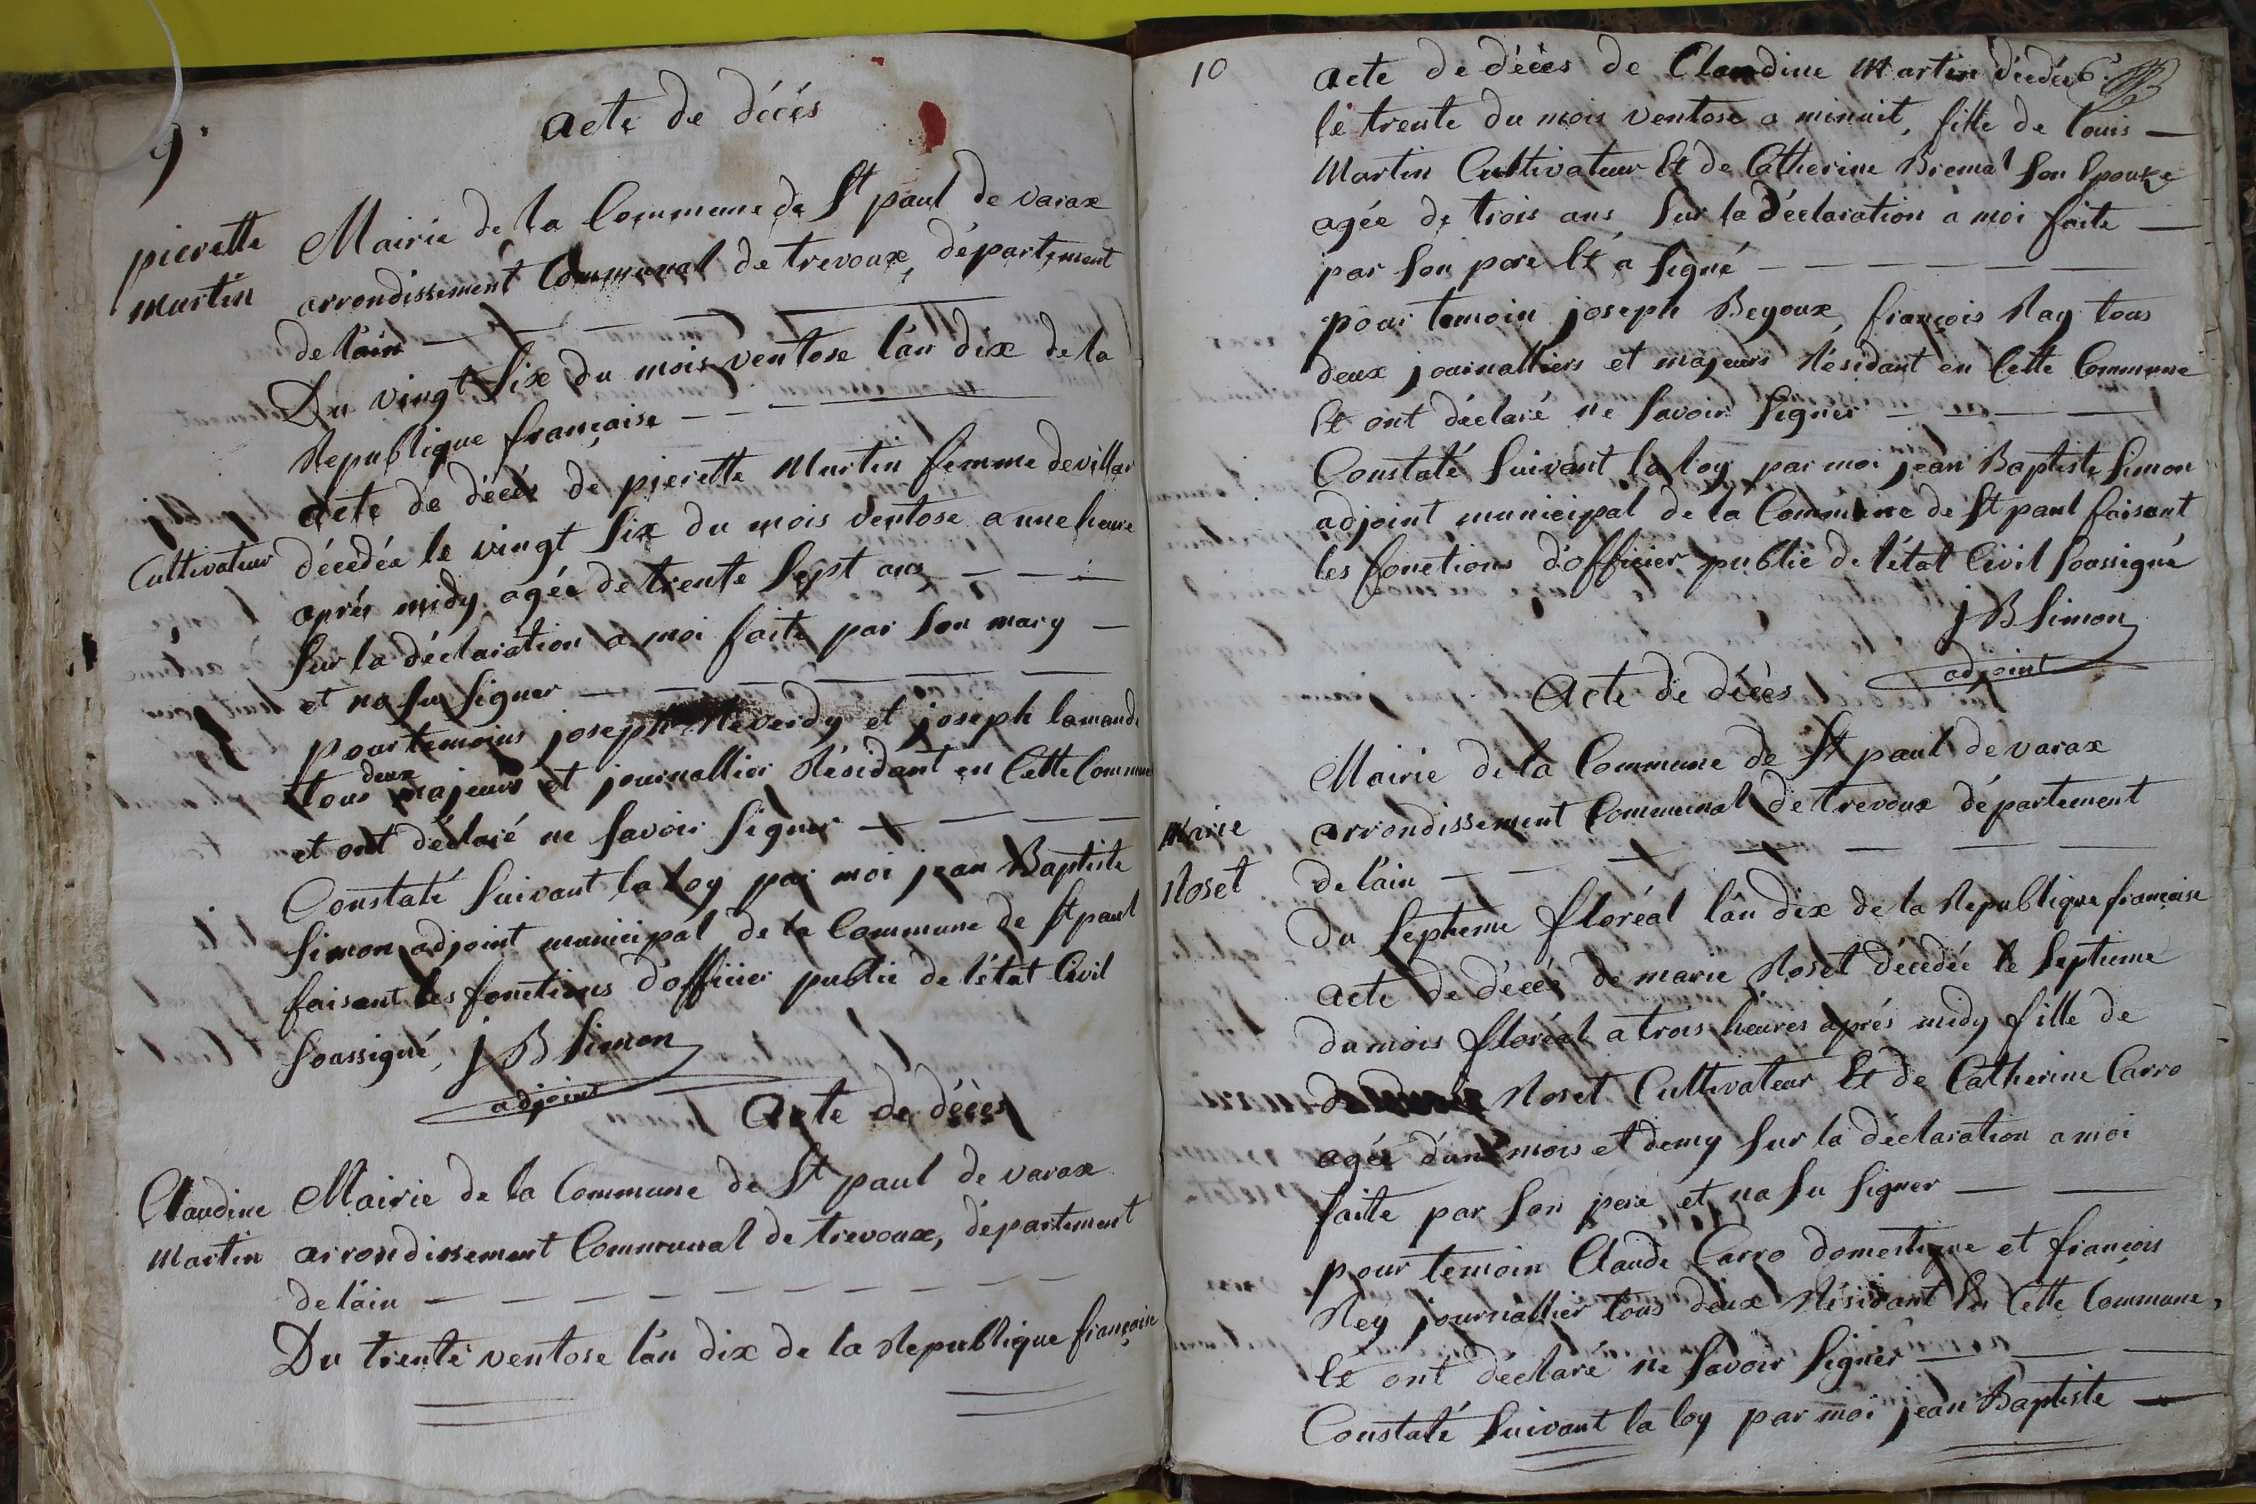 9.
acte de décés
pierette
Martin
Mairie de la Commune de St paul de varax
arrondissement Communal de trevoux, département
de l'ain
Du vingt six du mois ventose l'an dix de la
Republique française
acte de décés de pierette Martin femme devillar
Cultivateur
décedée le vingt six du mois ventose a une heure
aprés midy agée de trente sept ans
sur la déclaration a moi faite par son mary
et na su signer
pour temoins joseph Reverdy et joseph lamande
tous deux majeurs et journallier Résidant en Cette Commune
et ont déclaré ne savoir signer
Constaté suivant la loy par moi jean Baptiste
simon adjoint municipal de la Commune de St paul
faisant les fonctions d'officier public de l'état Civil
soassigné, J B Simon
adjoint
Acte de décés
Claudine
Martin
Mairie de la Commune de St paul de varax
arrondissement Communal de trevoux, département
de l'ain
Du trente ventose l'an dix de la Republique françoise
10
acte de décés de Claudine Martin décedée 6.
le trente du mois ventose a minuit, fille de louis
Martin Cultivateur Et de Catherine Bremal son Epouse
agée de trois ans sur la déclaration a moi faite
par son pere Et a signé
pour temoin joseph Begoux, françois Ray tous
deux journalliers et majeurs Résidant en Cette Commune
Et ont déclaré ne savoir signer
Constaté suivant la loy par moi jean Baptiste simon
adjoint municipal de la Commune de St paul faisant
les fonctions d'officier public de l'état Civil soassigné
J B Simon
adjoint
Acte de décès
Marie
Roset
Mairie de la Commune de St paul de varax
arrondissement Communal de trevoux département
de l'ain
du septieme floréal l'an dix de la Republique françoise
acte de décés de marie Roset décedée le septieme
du mois floréal a trois heures aprés midy fille de
Roset Cultivateur Et de Catherine Carro
agée d'un mois et demy sur la déclaration a moi
faite par son pere et na su signer
pour temoin Claude Carro domestique et françois
Rey journallier tous deux Résidant En Cette Commune,
Et ont déclaré ne savoir signer
Constaté suivant la loy par moi jean Baptiste